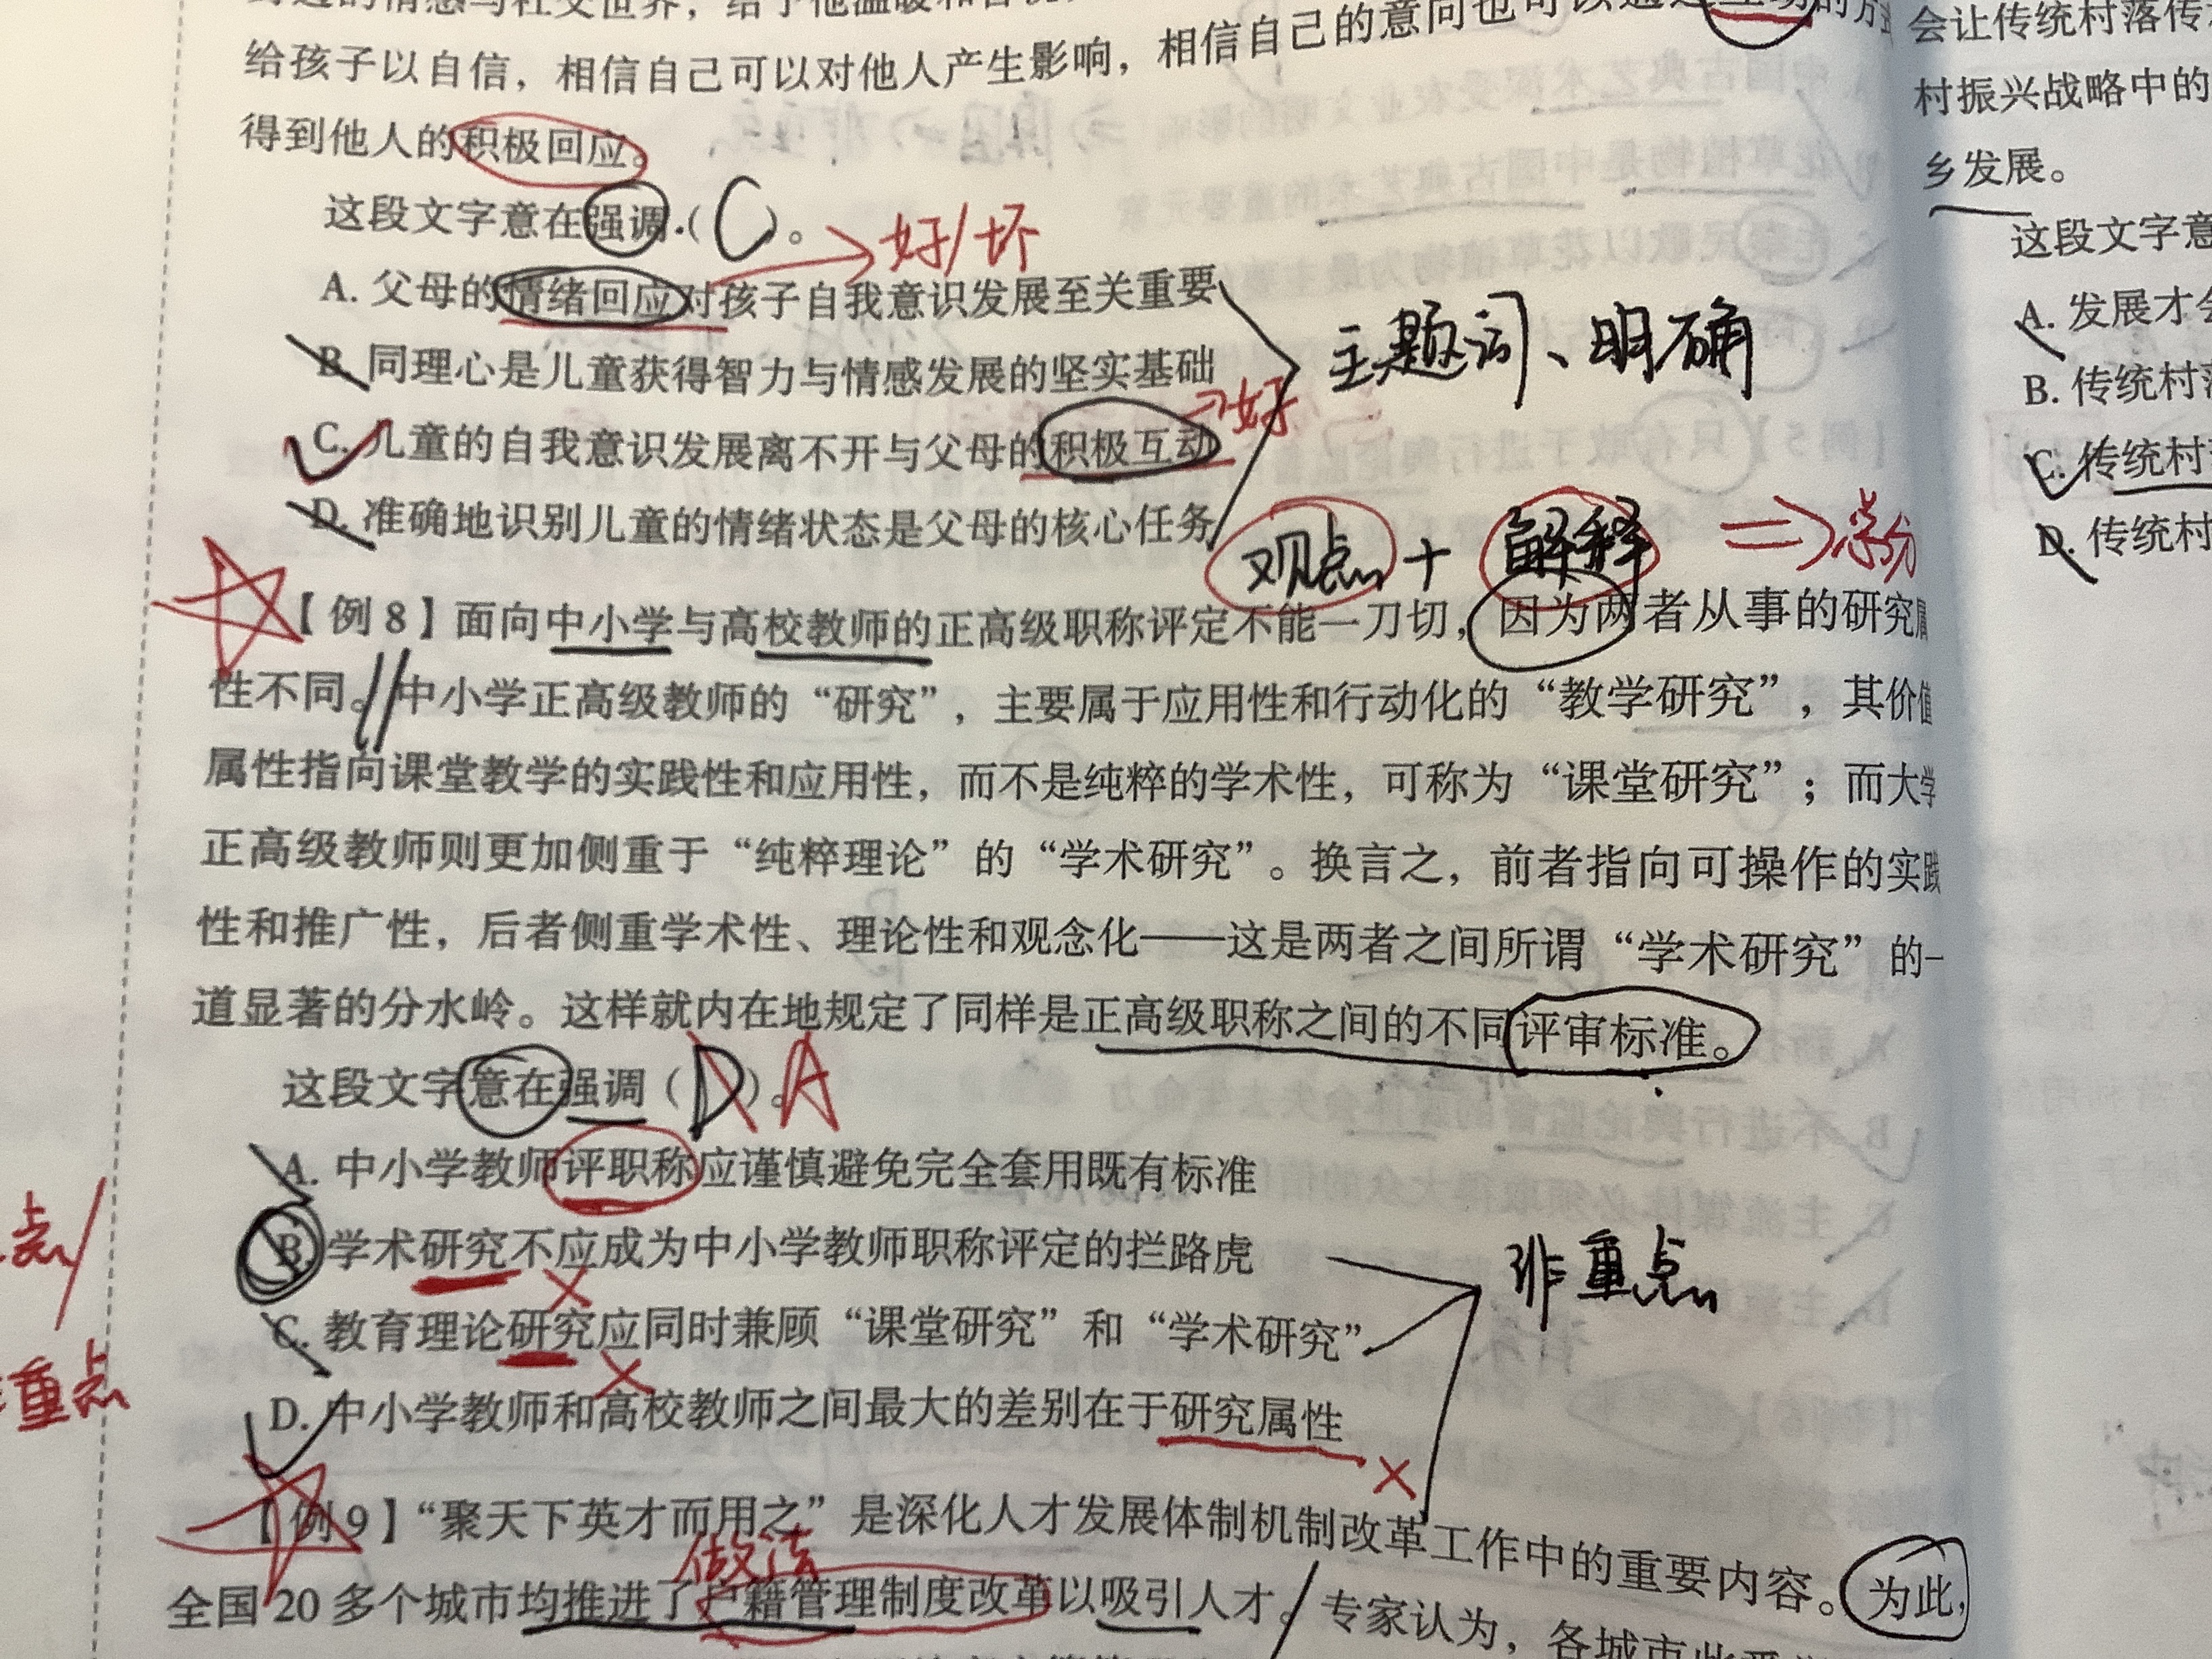 给孩子以自信，相信自己可以对他人产生影响，相信自己的意向也可以通过互动的方
得到他人的积极回应。
这段文字意在强调（C）。
好/坏
A. 父母的情绪回应对孩子自我意识发展至关重要
B. 同理心是儿童获得智力与情感发展的坚实基础
主题词、明确
C. 儿童的自我意识发展离不开与父母的积极互动
好
D. 准确地识别儿童的情绪状态是父母的核心任务
观点+解释
【例8】面向中小学与高校教师的正高级职称评定不能一刀切，因为两者从事的研究属
性不同。中小学正高级教师的“研究”，主要属于应用性和行动化的“教学研究”，其价值
属性指向课堂教学的实践性和应用性，而不是纯粹的学术性，可称为“课堂研究”；而大学
正高级教师则更加侧重于“纯粹理论”的“学术研究”。换言之，前者指向可操作的实践
性和推广性，后者侧重学术性、理论性和观念化——这是两者之间所谓“学术研究”的一
道显著的分水岭。这样就内在地规定了同样是正高级职称之间的不同评审标准。
这段文字意在强调（D）。A
A. 中小学教师评职称应谨慎避免完全套用既有标准
B. 学术研究不应成为中小学教师职称评定的拦路虎
非重点
C. 教育理论研究应同时兼顾“课堂研究”和“学术研究”
D. 中小学教师和高校教师之间最大的差别在于研究属性
【例9】“聚天下英才而用之”是深化人才发展体制机制改革工作中的重要内容。为此，
做法
全国20多个城市均推进了户籍管理制度改革以吸引人才。专家认为，各城市
点/
重点
会让传统村落传
村振兴战略中的
乡发展。
这段文字意
A. 发展才会
B. 传统村
C. 传统村
D. 传统村